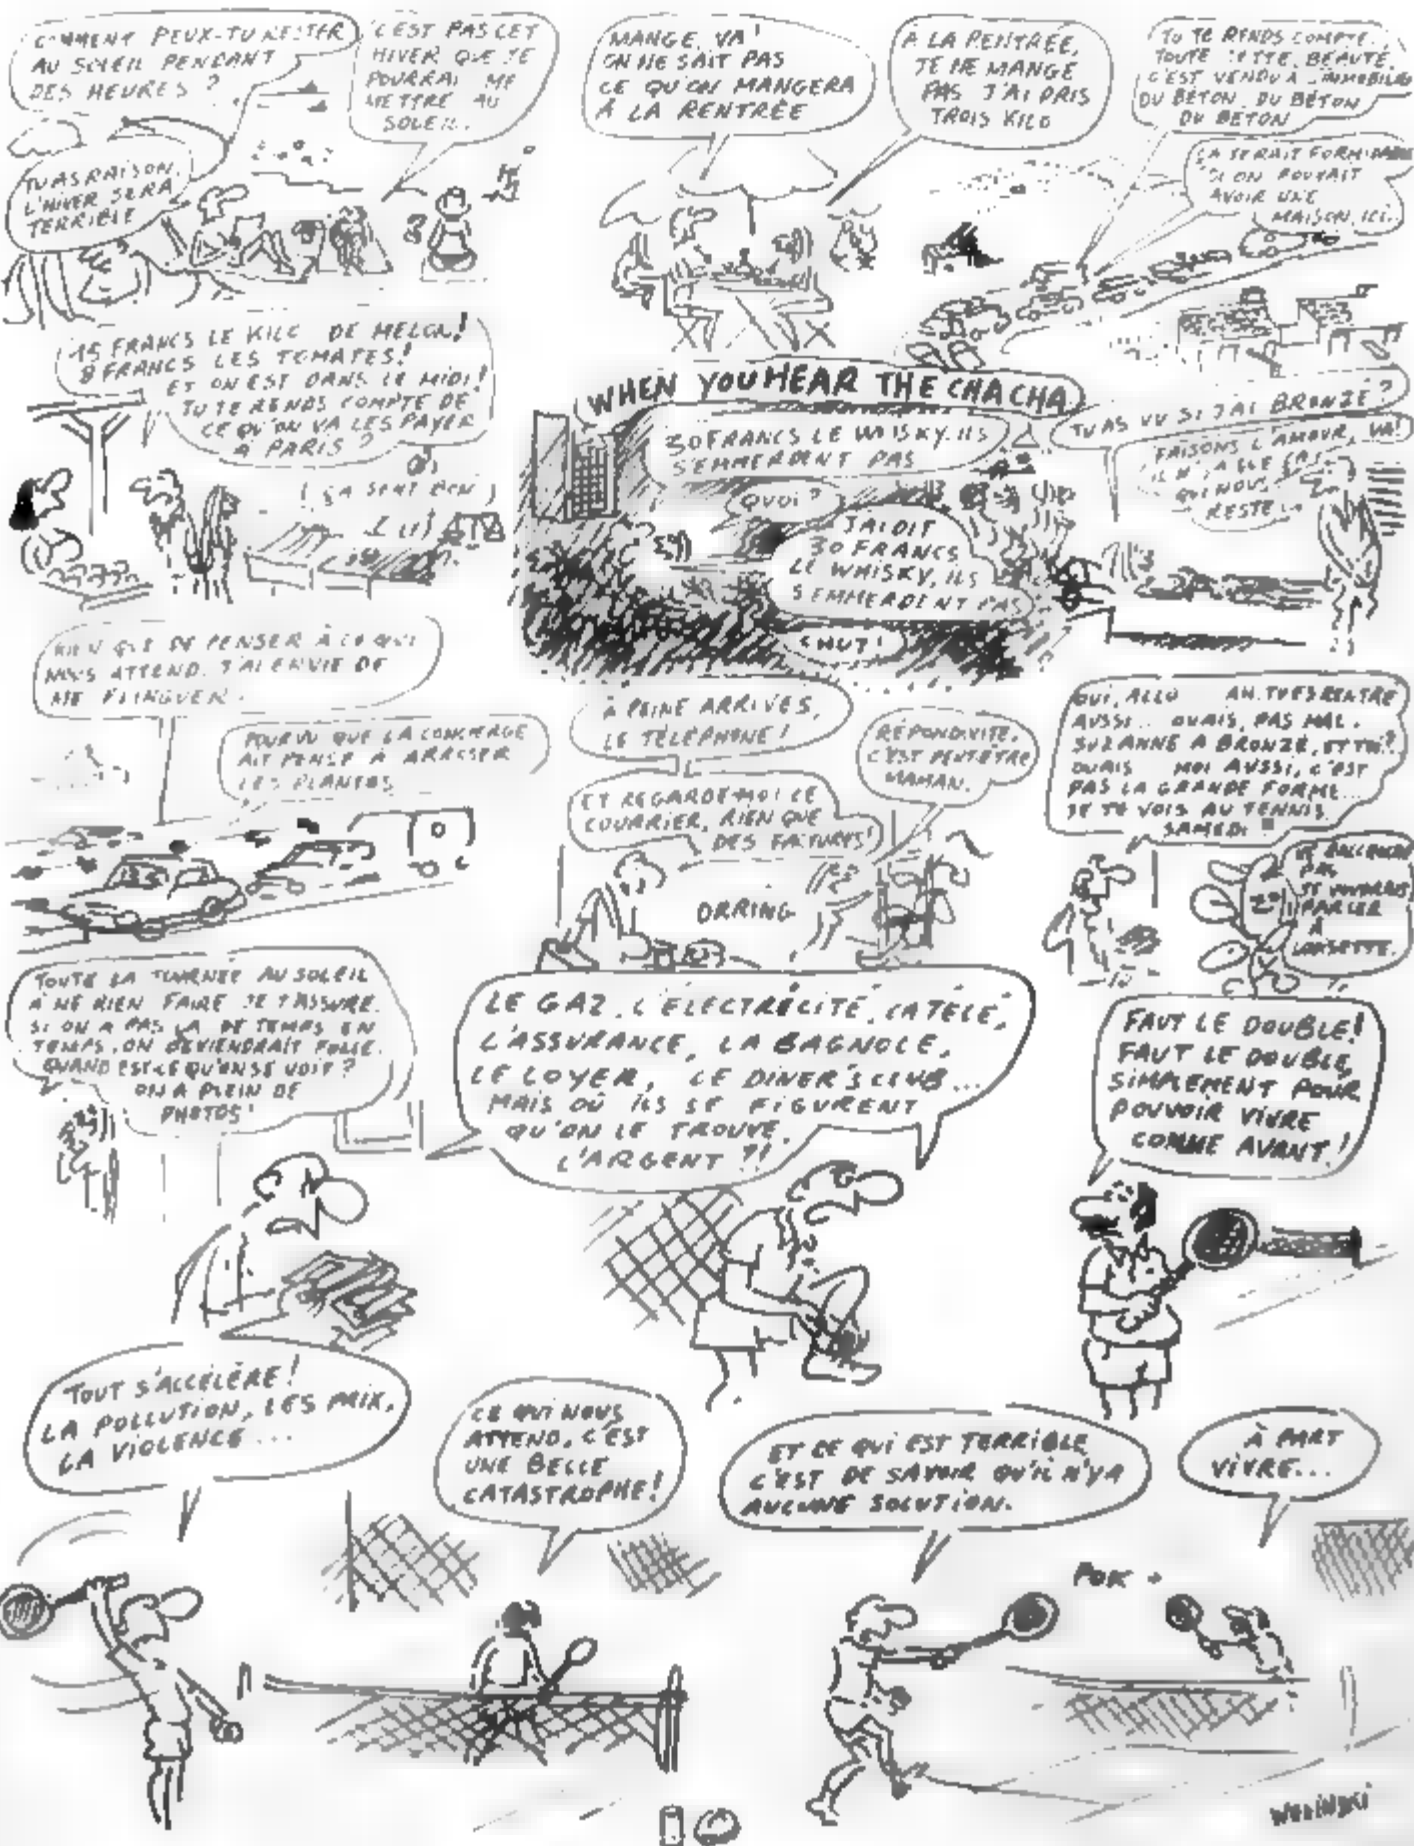 COMMENT PEUX-TU RESTER
AU SOLEIL PENDANT
DES HEURES ?
C'EST PAS CET
HIVER QUE JE
POURRAI ME
METTRE AU
SOLEIL.
TU AS RAISON.
L'HIVER SERA
TERRIBLE
MANGE, VA !
ON NE SAIT PAS
CE QU'ON MANGERA
À LA RENTRÉE
À LA RENTRÉE,
JE NE MANGE
PAS J'AI PRIS
TROIS KILO
TU TE RENDS COMPTE.
TOUTE CETTE BEAUTÉ,
C'EST VENDU À
DU BÉTON. DU BÉTON
DU BETON
ÇA SERAIT FORMIDABLE
SI ON POUVAIT
AVOIR UNE
MAISON, ICI.
15 FRANCS LE KILO DE MELON !
8 FRANCS LES TOMATES !
ET ON EST DANS LE MIDI !
TU TE RENDS COMPTE DE
CE QU'ON VA LES PAYER
À PARIS ?
ÇA SENT BON
WHEN YOU HEAR THE CHACHA
30 FRANCS LE WHISKY. ILS
S'EMMERDENT PAS
QUOI ?
J'AI DIT
30 FRANCS
LE WHISKY, ILS
S'EMMERDENT PAS
CHUT !
TU AS VU SI J'AI BRONZÉ ?
FAISONS L'AMOUR, VA !
IL N'Y A QUE ÇA
QUI NOUS
RESTE
RIEN QUE DE PENSER À CE QUI
NOUS ATTEND. J'AI ENVIE DE
ME FLINGUER.
POURVU QUE LA CONCIERGE
AIT PENSÉ À ARROSER
LES PLANTES
À PEINE ARRIVÉS,
LE TÉLÉPHONE !
RÉPOND VITE,
C'EST PEUT ÊTRE
MAMAN.
ET REGARDE-MOI LE
COURRIER, RIEN QUE
DES FACTURES !
DRRING
OUI, ALLO AH. TU ES RENTRÉ
AUSSI.. OUAIS, PAS MAL.
SUZANNE A BRONZÉ, ET TOI ?
OUAIS MOI AUSSI, C'EST
PAS LA GRANDE FORME...
JE TE VOIS AU TENNIS
SAMEDI
NE RACCROCHE
PAS
JE VOUDRAIS
PARLER
À
TOUTE LA JOURNÉE AU SOLEIL
À NE RIEN FAIRE JE T'ASSURE.
SI ON A PAS ÇA DE TEMPS EN
TEMPS, ON DEVIENDRAIT FOLLE.
QUAND EST-CE QU'ON SE VOIT ?
ON A PLEIN DE
PHOTOS !
LE GAZ, L'ÉLECTRÉCITÉ, LA TÉLÉ,
L'ASSURANCE, LA BAGNOLE,
LE LOYER, LE DINER'S CLUB...
MAIS OÙ ILS SE FIGURENT
QU'ON LE TROUVE,
L'ARGENT ?!
FAUT LE DOUBLE !
FAUT LE DOUBLE,
SIMPLEMENT POUR
POUVOIR VIVRE
COMME AVANT !
TOUT S'ACCÉLÈRE !
LA POLLUTION, LES PRIX,
LA VIOLENCE...
CE QUI NOUS
ATTEND, C'EST
UNE BELLE
CATASTROPHE !
ET CE QUI EST TERRIBLE
C'EST DE SAVOIR QU'IL N'Y A
AUCUNE SOLUTION.
À PART
VIVRE...
POK
WOLINSKI